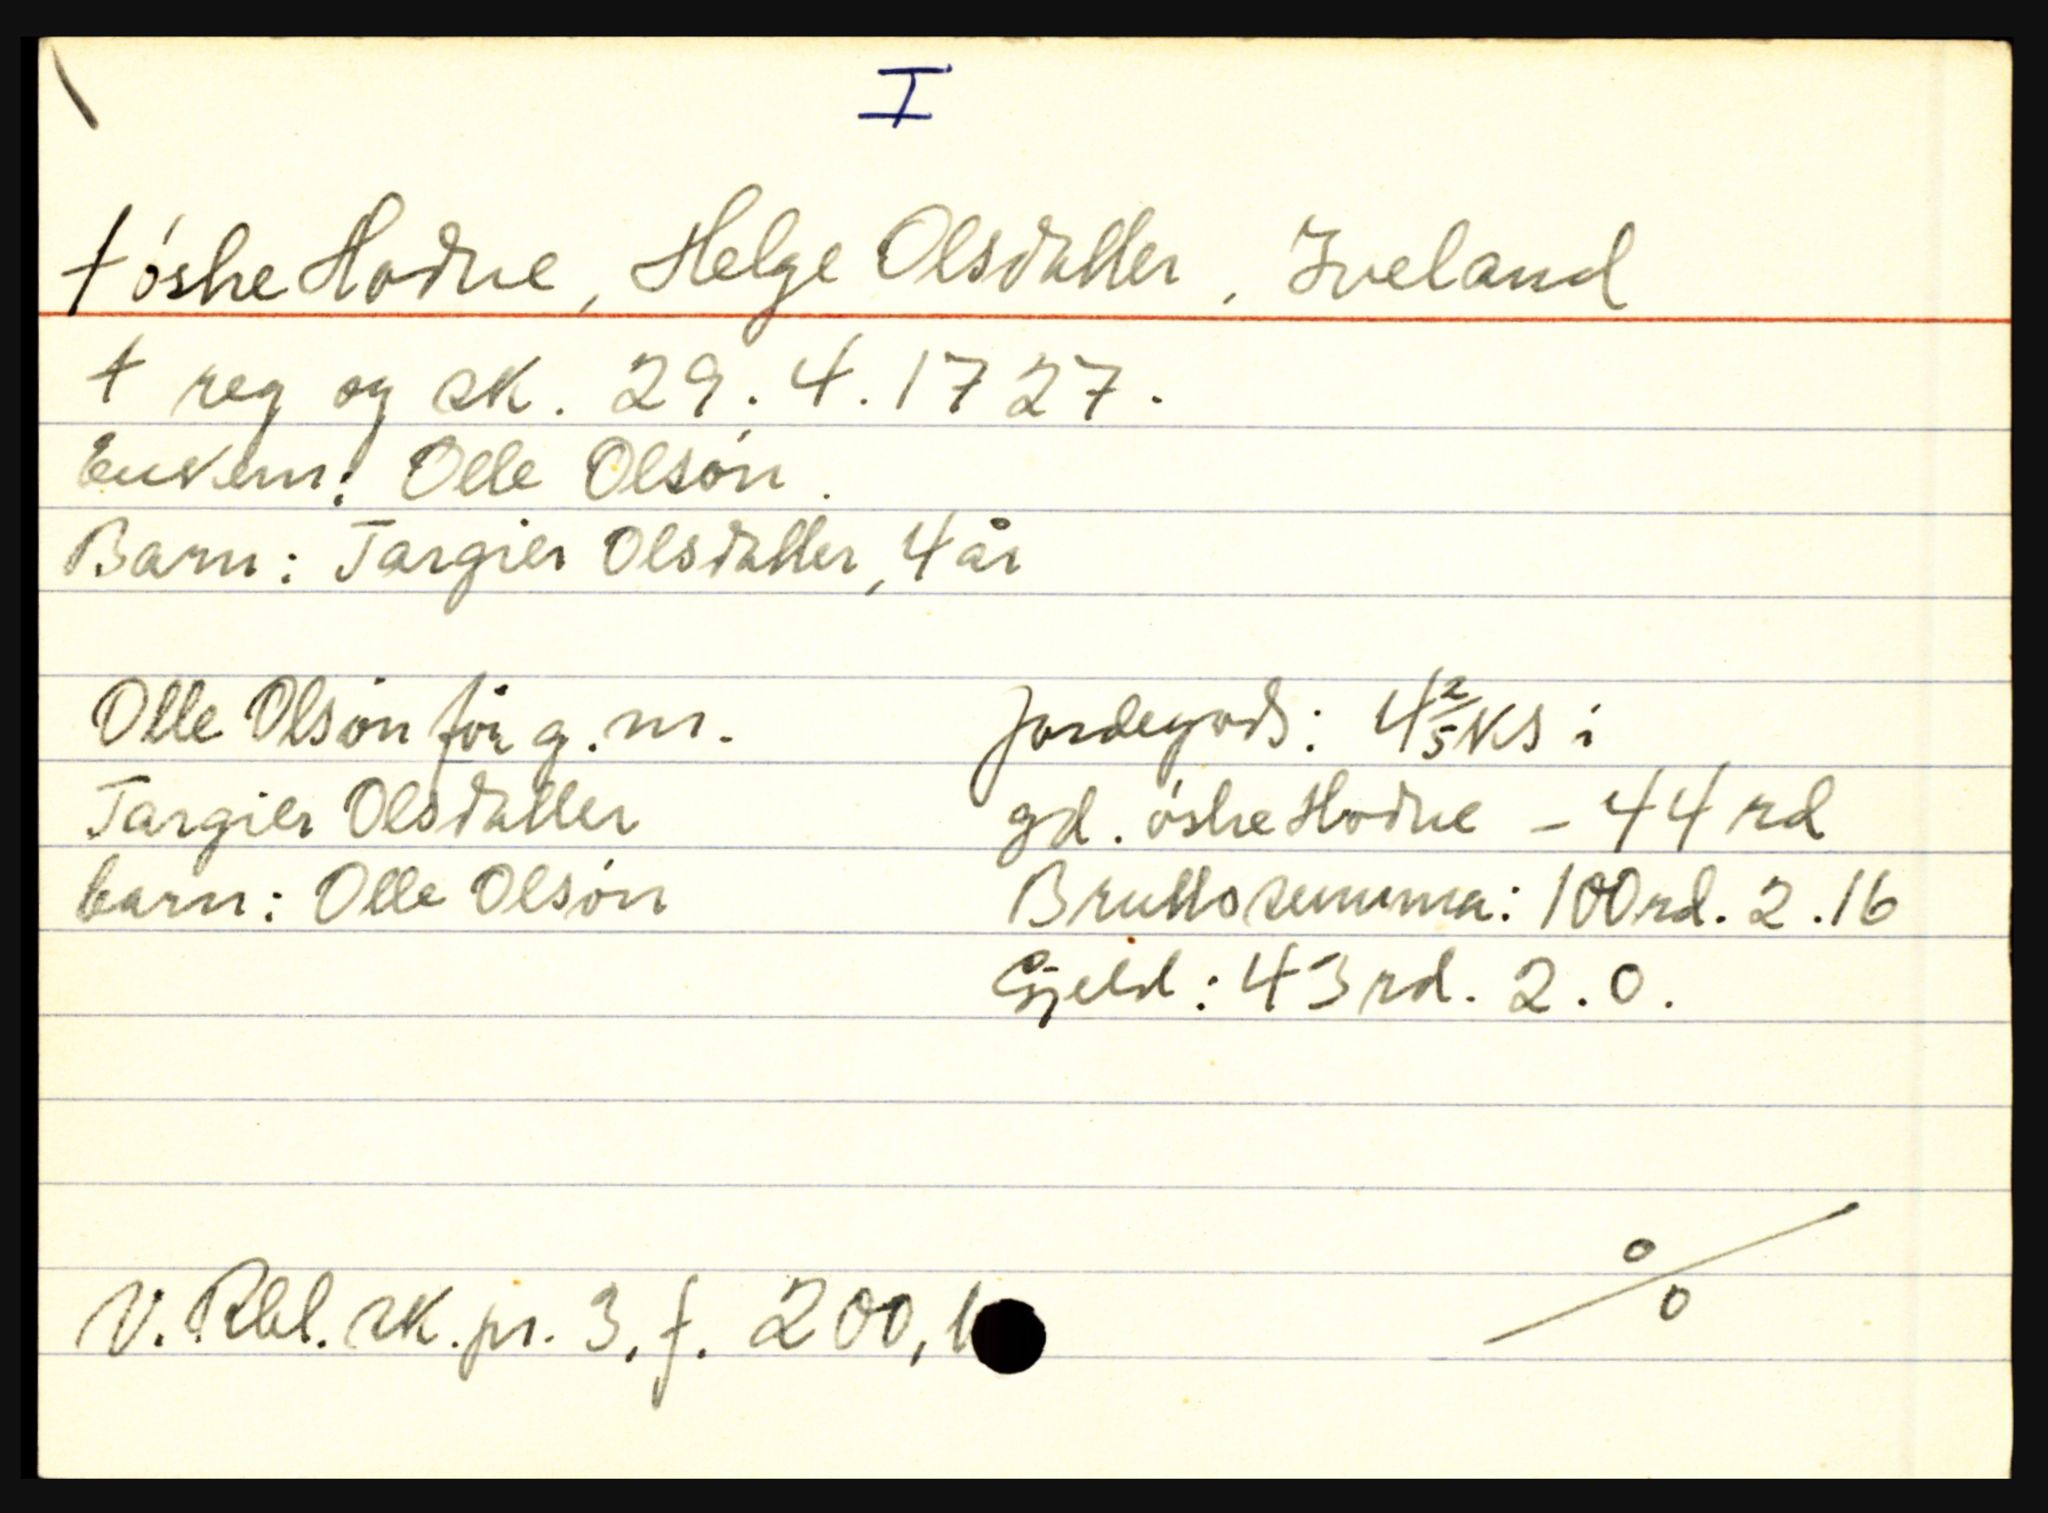 I
† óshe Hodne, Helge Olsdatter, Iveland
† reg og sk. 29.4.1727.
Enkem: Olle Olsón.
Barn: Targier Olsdatter, 4 år
Olle Olsón för g. m.
Targier Olsdatter
barn: Olle Olsón
Jordegods: 4 2/5 ks i
gd. óshe Hodne - 44 rd
Bruttosumma: 100 rd. 2.16
Gjeld: 43 rd. 2.0.
V. Rbl. sk. pr. 3, f. 200,
%